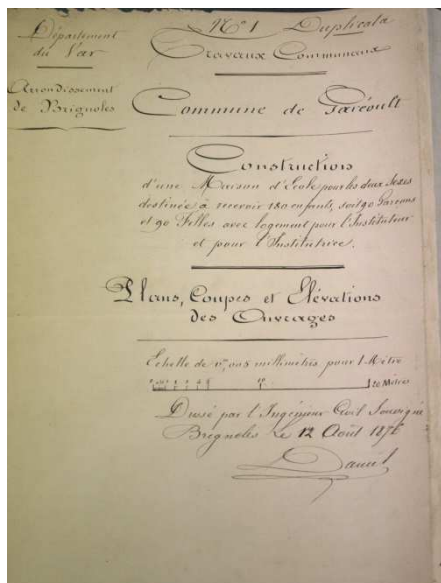 Département
du Var
Arrondissement
de Brignoles
N° 1 Duplicata
Travaux Communaux
Commune de Garéoult
Construction
d'une Maison d'Ecole pour les deux Sexes
destinée à recevoir 180 enfants, soit 90 Garçons
et 90 Filles avec logement pour l'Instituteur
et pour l'Institutrice.
Plans, Coupes et Élévations
des Ouvrages
Echelle de 0m,008 millimètres pour 1 Mètre
10 20 Mètres
Dressé par l'Ingénieur Civil Soussigné
Brignoles le 12 Août 187